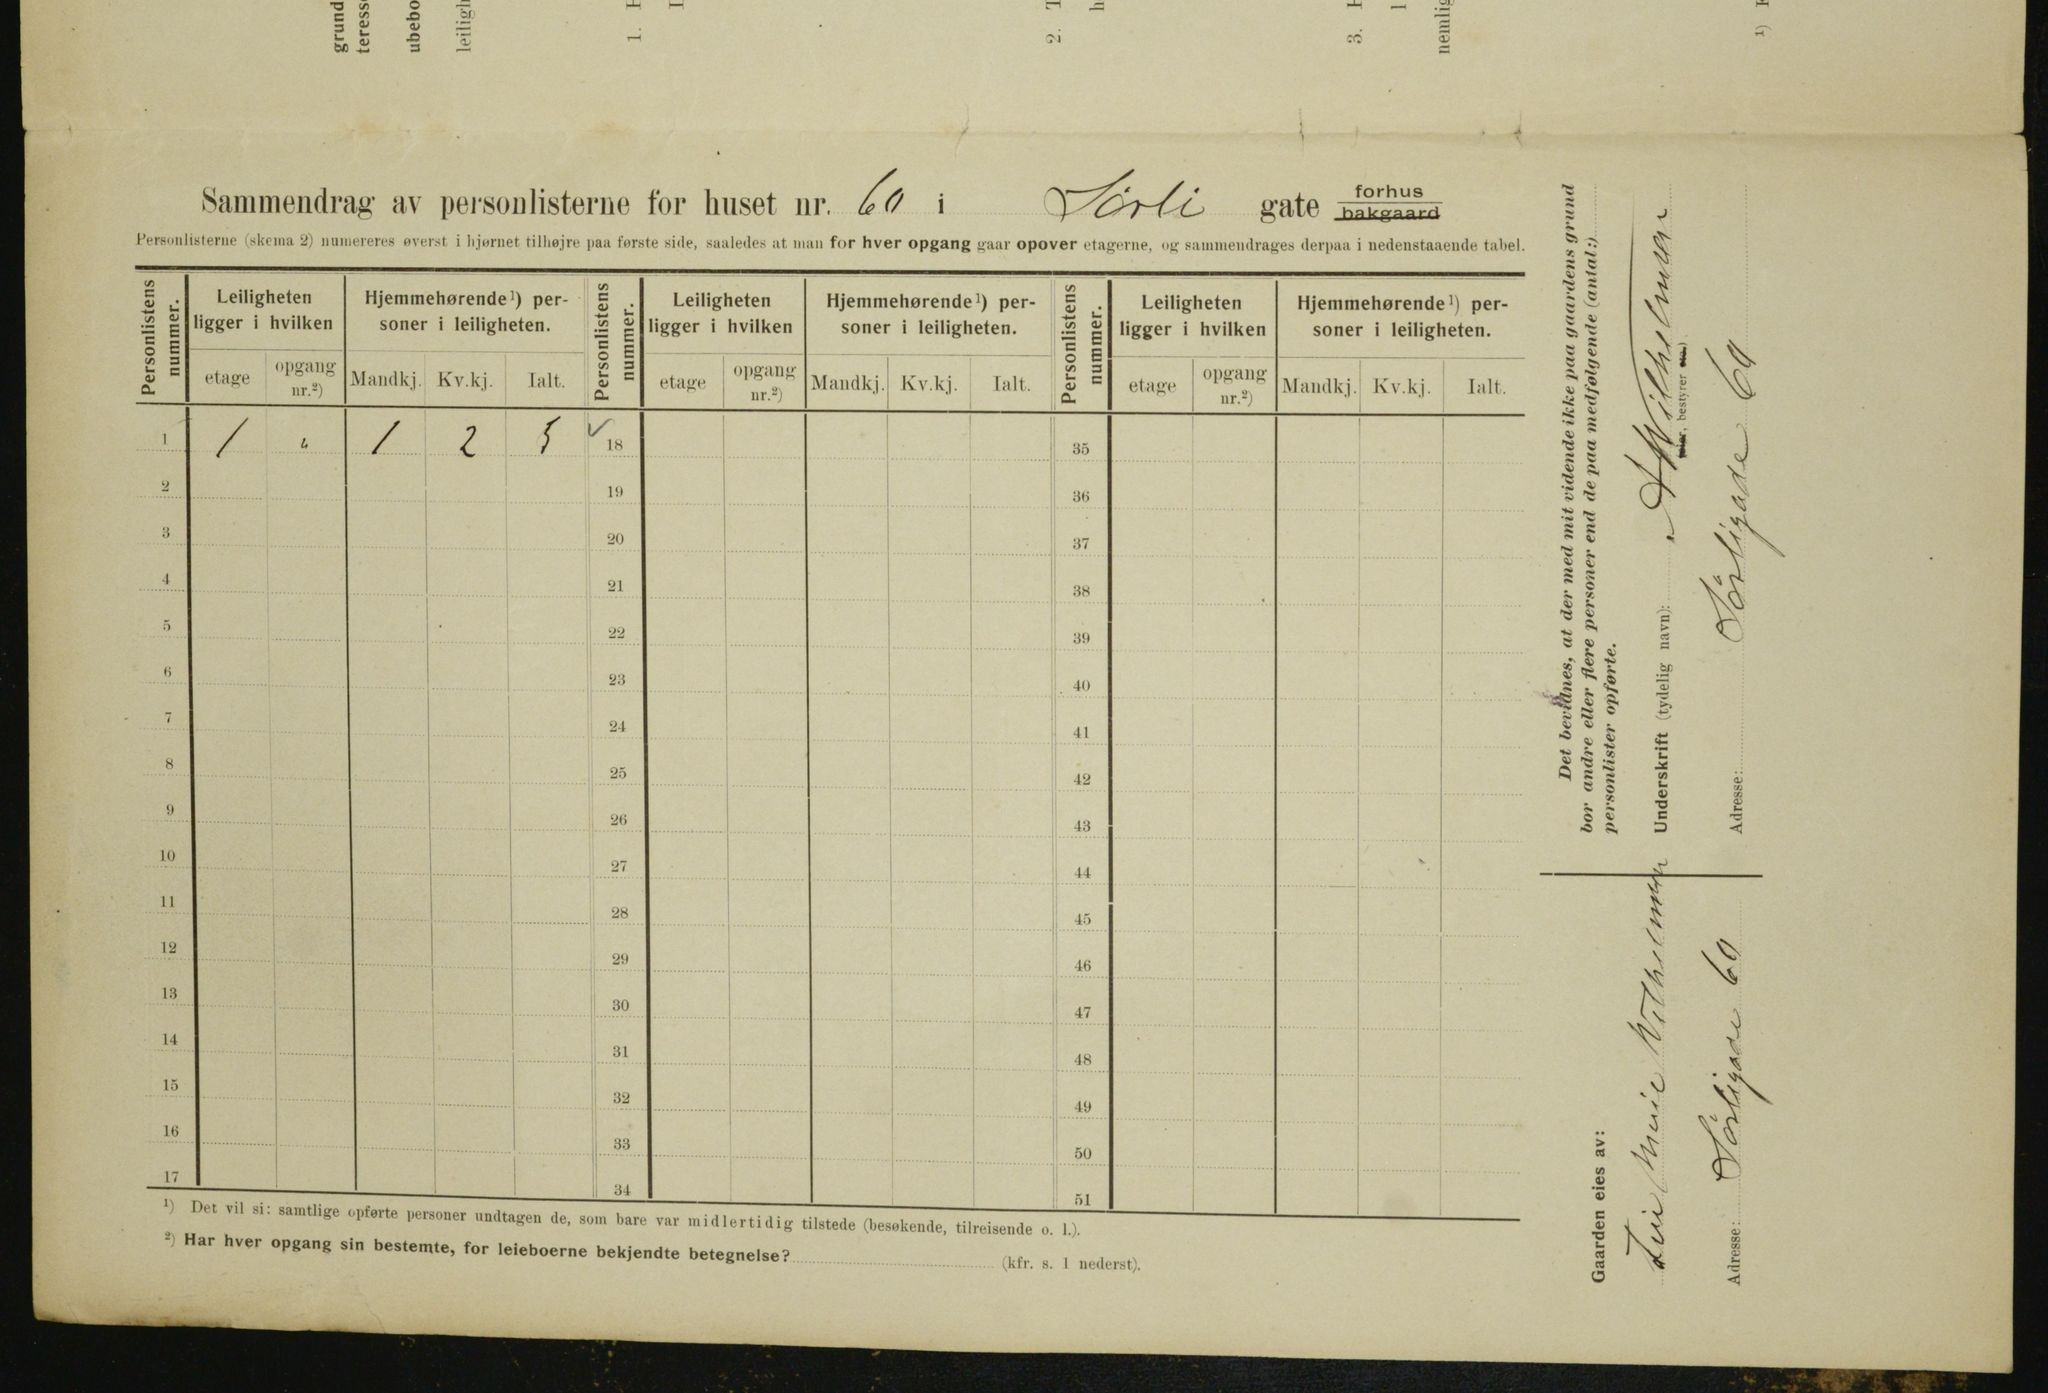 grund
teress
ubebo
leiligh
1.
2.
3.
nemlig
Sammendrag av personlisterne for huset nr. 60 i Sörli gate forhus
bakgaard
Personlisterne (skema 2) numereres øverst i hjørnet tilhøjre paa første side, saaledes at man for hver opgang gaar opover etagerne, og sammendrages derpaa i nedenstaaende tabel.
Personlistens nummer. Leiligheten ligger i hvilken Hjemmehørende¹) personer i leiligheten. Personlistens nummer. Leiligheten ligger i hvilken Hjemmehørende¹) personer i leiligheten. Personlistens nummer. Leiligheten ligger i hvilken Hjemmehørende¹) personer i leiligheten.
etage opgang nr.²) Mandkj. Kv.kj. Ialt. etage opgang nr.²) Mandkj. Kv.kj. Ialt. etage opgang nr.²) Mandkj. Kv.kj. Ialt.
1 1 " 1 2 3 ✓ 18 35
2 19 36
3 20 37
4 21 38
5 22 39
6 23 40
7 24 41
8 25 42
9 26 43
10 27 44
11 28 45
12 29 46
13 30 47
14 31 48
15 32 49
16 33 50
17 34 51
¹) Det vil si: samtlige opførte personer undtagen de, som bare var midlertidig tilstede (besøkende, tilreisende o. l.).
²) Har hver opgang sin bestemte, for leieboerne bekjendte betegnelse? (kfr. s. 1 nederst).
Det bevidnes, at der med mit vidende ikke paa gaardens grund
bor andre eller flere personer end de paa medfølgende (antal:)
personlister opførte.
Underskrift (tydelig navn): A Wilhelmsen
eier, bestyrer etc.)
Adresse: Sörligade 60
Gaarden eies av:
Wilhelmsen
Adresse: Sörligade 60